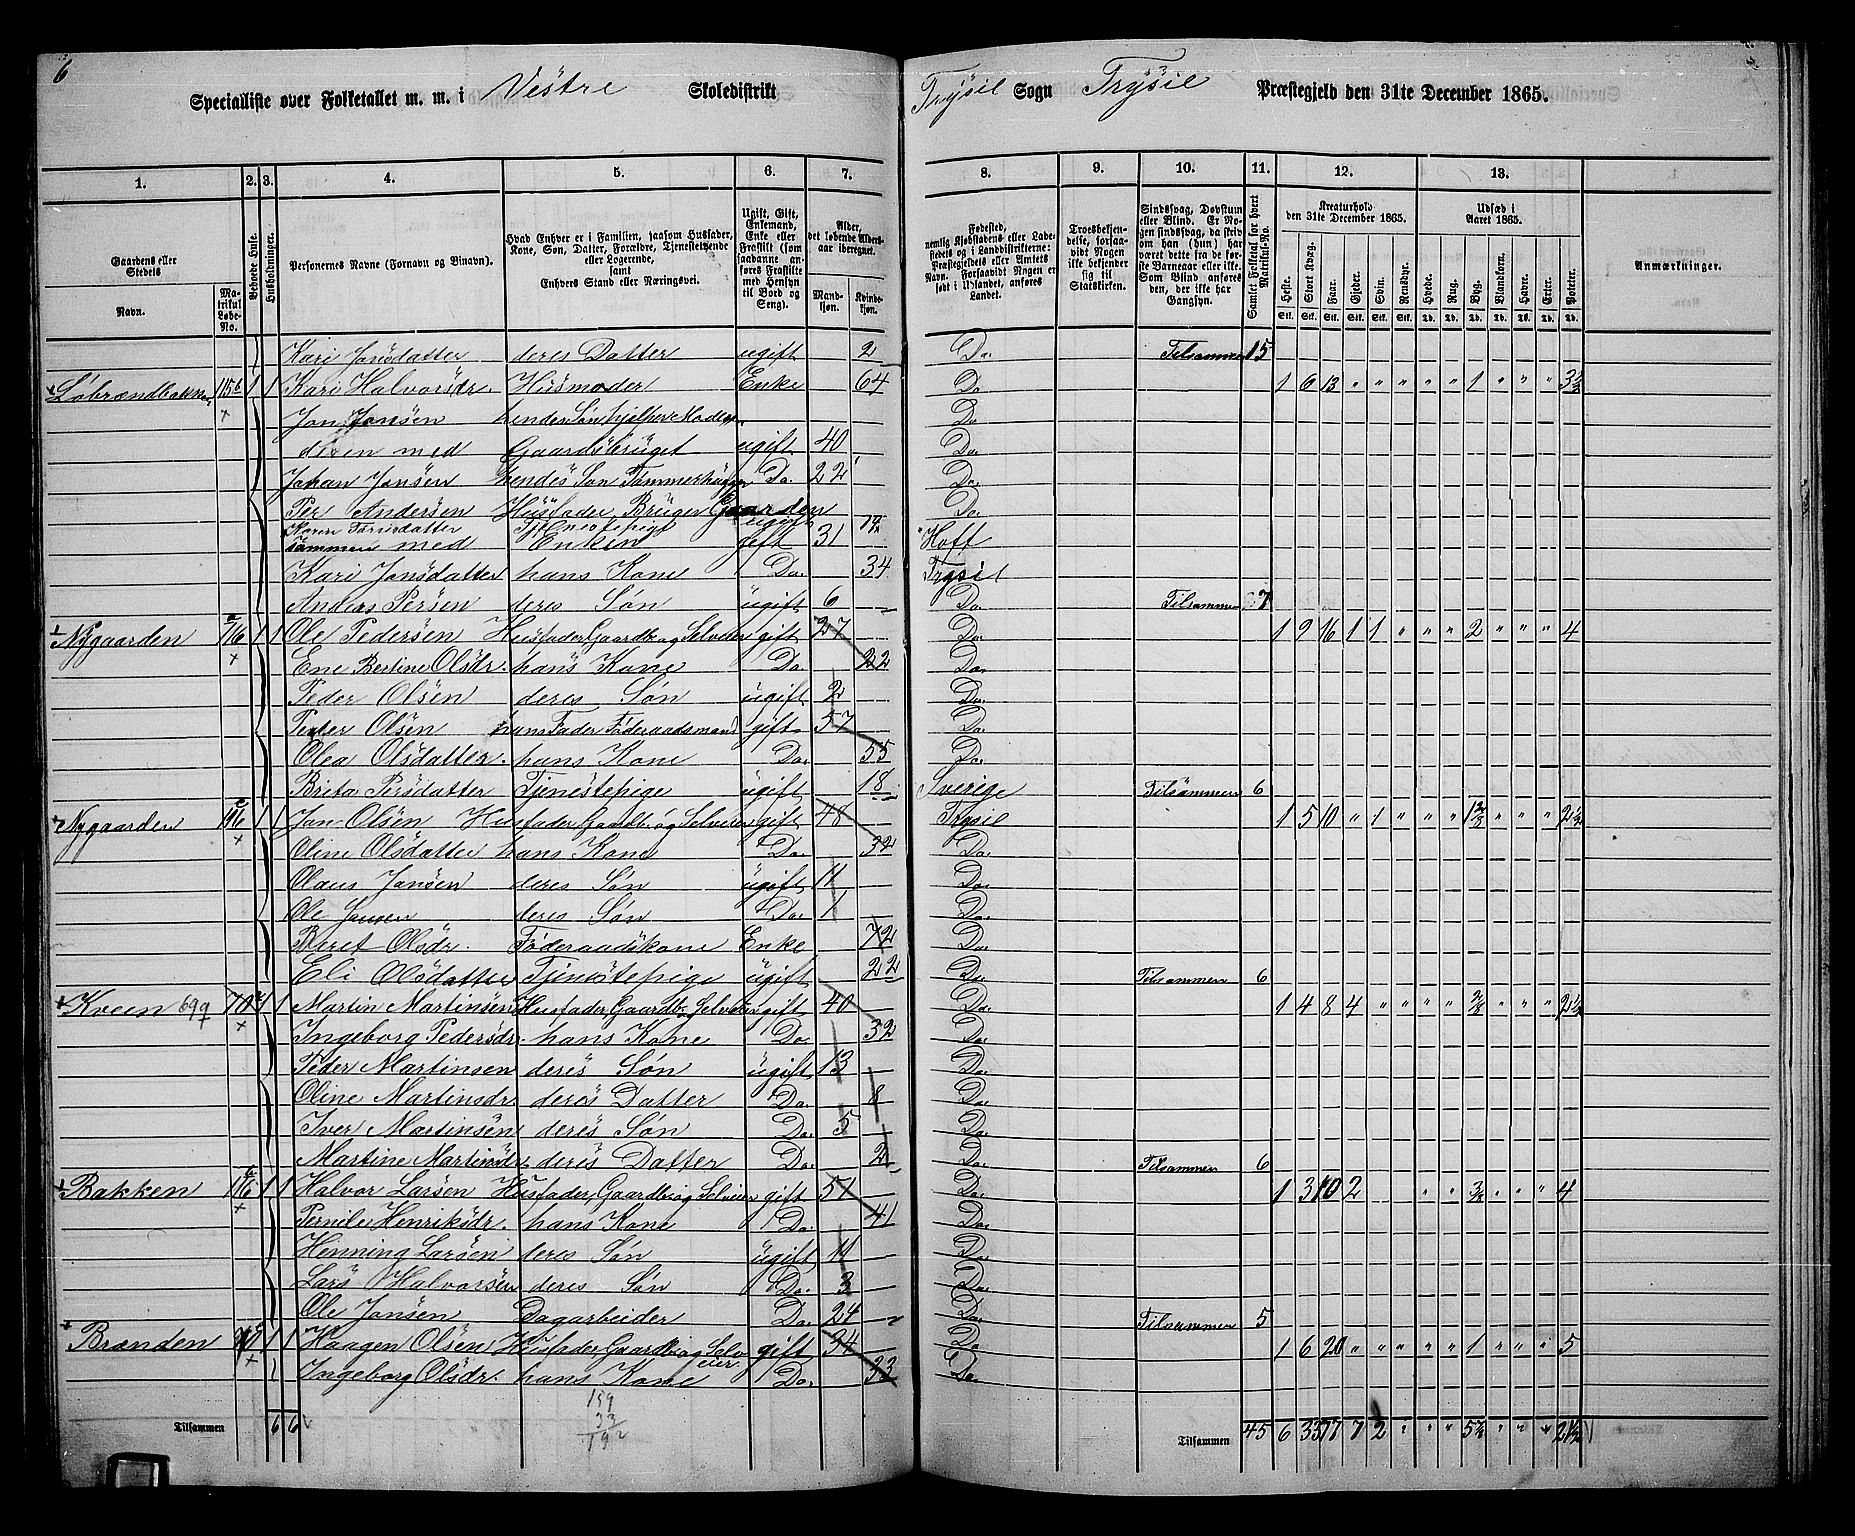 6
Specialliste over Folketallet m. m. i Vestre Skoledistrikt Trysil Sogn Trysil Præstegjeld den 31te December 1865.
1. 2. 3. 4. 5. 6. 7. 8. 9. 10. 11. 12. 13.
Gaardens eller Stedets
Navn. Matrikul Løbe-No.
Beboede Huse.
Husholdninger.
Personernes Navne (Fornavn og Binavn).
Hvad Enhver er i Familien, saasom Husfader, Kone, Søn, Datter, Forældre, Tjenestetyende eller Logerende, samt Enhvers Stand eller Næringsvei.
Ugift, Gift, Enkemand, Enke eller Fraskilt (som saadanne anføres Fraskilte med Hensyn til Bord og Seng).
Alder, det løbende Aldersaar iberegnet.
Mandkjøn. Kvindekjøn.
Fødested, nemlig Kjøbstadens eller Ladestedets og i Landdistrikterne: Præstegjeldets eller Amtets Navn. Forsaavidt Nogen er født i Udlandet, anføres Landet.
Troesbekjendelse, forsaavidt Nogen ikke bekjender sig til Statskirken.
Sindssvag, Døvstum eller Blind. Er Nogen sindssvag, da skriv om han (hun) har været dette fra de første Barneaar eller ikke. Som Blind anføres den, der ikke har Gangsyn.
Samlet Folketal for hvert Matrikul-No.
Kreaturhold den 31te December 1865.
Heste. Stort Kvæg. Faar. Gjeder. Svin. Rensdyr.
Udsæd i Aaret 1865.
Hvede. Rug. Byg. Blandkorn. Havre. Erter. Poteter.
Anmærkninger.
Kari Jonsdatter deres Datter ugift 2 Do. Tilsammen 15
Løbrændbakken 115 1 1 Kari Halvorsdr. Husmoder Enke 64 Do 1 6 13 " " " " " 1 " " " 3½
Jon Jonsen hendes Søn hjelper Moderen Do
med Gaardsbruget ugift 40 Do.
Johan Jonsen hendes Søn Tømmerhugger Do. 22 Do.
Per Andersen Husfader Bruger Gaarden Do.
Karen Tjenestepige ugift
sammen med Enken gift 31 Hoff
Kari Jonsdatter hans Kone Do. 34 Trysil
Anders Persen deres Søn ugift 6 Do. Tilsammen 7
Nygaarden 116 1 1 Ole Pedersen Husfader Gaardb. og Selveier gift 27 Do. 1 9 16 1 1 " " " 2 " " " 4
Ene Bertine Olsdr. hans Kone Do. 22 Do.
Peder Olsen deres Søn ugift 2 Do.
Peder Olsen hans Fader Føderaadsmand gift 57 Do.
Olea Olsdatter hans Kone Do. 55 Do.
Brita Persdatter Tjenestepige ugift 18 Sverige Tilsammen 6
Nygaarden 116 1 1 Jon Olsen Husfader Gaardb. og Selveier gift 48 Trysil 1 5 10 " 1 " " " " " " 2½
Oline Olsdatter hans Kone Do. 32 Do.
Olaus Jonsen deres Søn ugift 11 Do.
Ole Jonsen deres Søn Do. 1 Do.
Beret Olsdr. Føderaadskone Enke 72 Do.
Eli Olsdatter Tjenestepige ugift 22 Do. Tilsammen 6
Kveen 699 1 1 Martin Martinsen Husfader Gaardb. Selveier gift 40 Do. 1 4 8 4 " " " " " " " 2½
Ingeborg Pedersdr. hans Kone Do. 32 Do.
Peder Martinsen deres Søn ugift 13 Do.
Oline Martinsdr deres Datter Do. 8 Do.
Iver Martinsen deres Søn Do. 5 Do.
Martine Martinsdr. deres Datter Do. 2 Do. Tilsammen 6
Bakken 116 1 1 Halvor Larsen Husfader, Gaardb. og Selveier gift 51 Do. 1 3 10 2 " " " " " 4
Pernille Henriksdr. hans Kone Do. 41 Do.
Henning Larsen deres Søn ugift 11 Do.
Lars Halvorsen deres Søn Do. 3 Do.
Ole Jonsen Dagarbeider Do. 24 Do. Tilsammen 5
Brænden 1 1 Haagen Olsen Husfader Gaardb. og Selveier gift 34 Do. 1 6 20 " " " " " 1 " " " 5
Ingeborg Olsdr. hans Kone Do. 33 Do.
159
33
192
Tilsammen 6 6 Tilsammen 45 6 33 77 7 2 " " " " " 21½